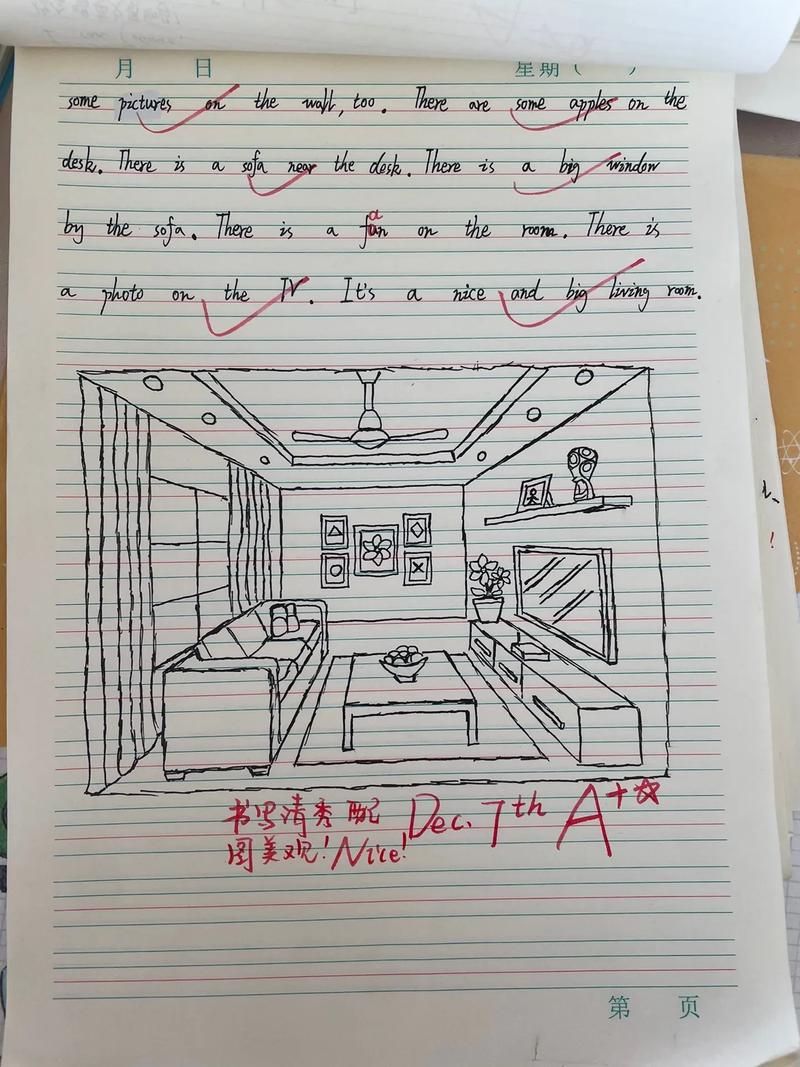 月 日 星期( )
some pictures on the wall, too. There are some apples on the
desk. There is a sofa near the desk. There is a big window
by the sofa. There is a fun on the room. There is
a
a photo on the TV. It's a nice and big living room.
书写清秀 配
图美观! Nice!
Dec. 7th A+
第 页